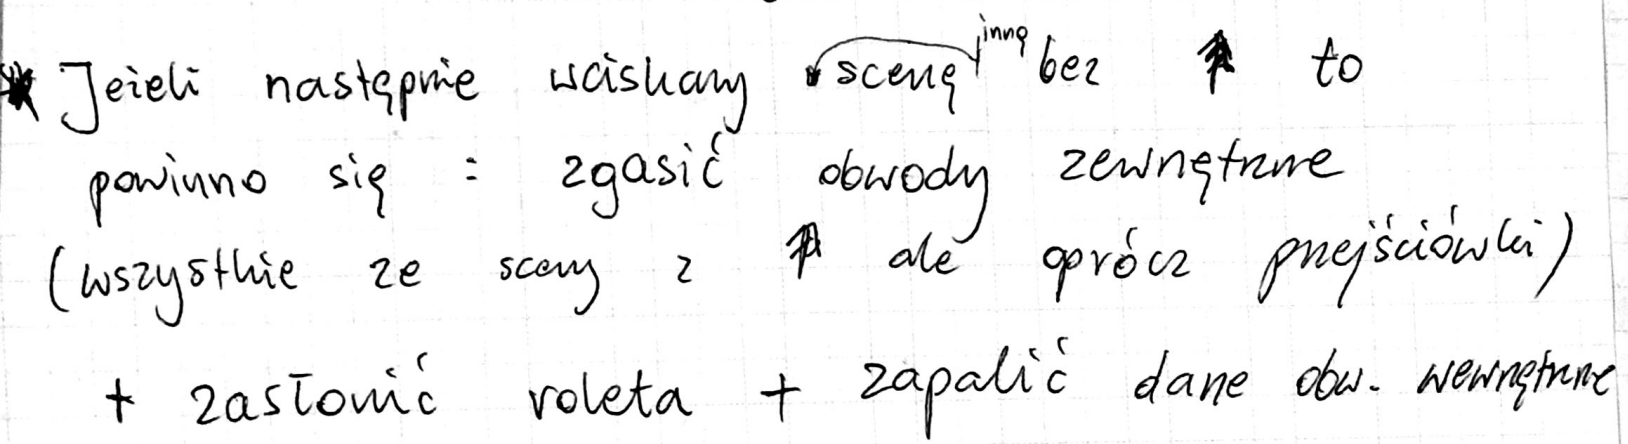 * Jeżeli następnie wciskamy scenę inną bez ↑ to
powinno się : zgasić obwody zewnętrzne
(wszystkie ze sceny z ↑ ale oprócz przejściówki)
+ zasłonić roleta + zapalić dane obw. wewnętrzne